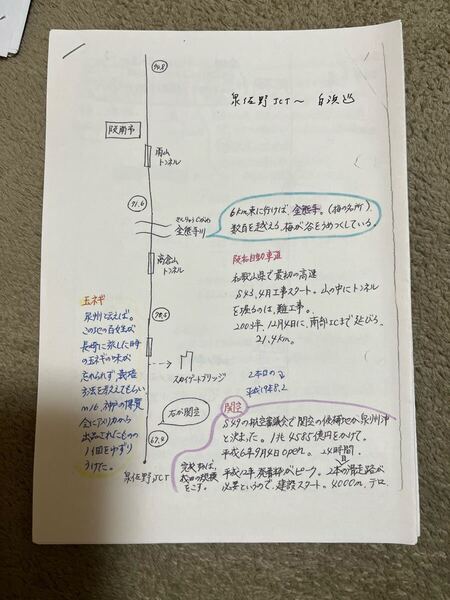 泉佐野JCT〜白浜迄
94.8
阪南市
南山
トンネル
91.6
きんゆうじがわ
金熊寺川
6km東に行けば、金熊寺。(梅の名所)
数百を越える、梅が谷をうめつくしている。
高倉山
トンネル
阪和自動車道
和歌山県で最初の高速
S43,4月工事スタート。山の中にトンネル
を掘るのは、難工事。
2003年、12月14日に、南部ICまで延びる。
21.4km。
玉ネギ
泉州と云えば。
この地の百姓が
長崎に旅した時
の玉ネギの味が
忘れられず、栽培
方法を教えてもらい
M16,神戸の博覧
会にアメリカから
出品されたもの
1個をゆずり
うけた。
スカイゲートブリッジ
2本目の
平成19.8.2
右が関空
67.9
泉佐野JCT
関空
S49の航空審議会で関空の候補地が泉州沖
と決まった。1兆4585億円をかけて。
平成6年9月4日open。24時間。
平成12年、発着枠がピーク。2本の滑走路が
必要というので、建設スタート。4000m,テロ